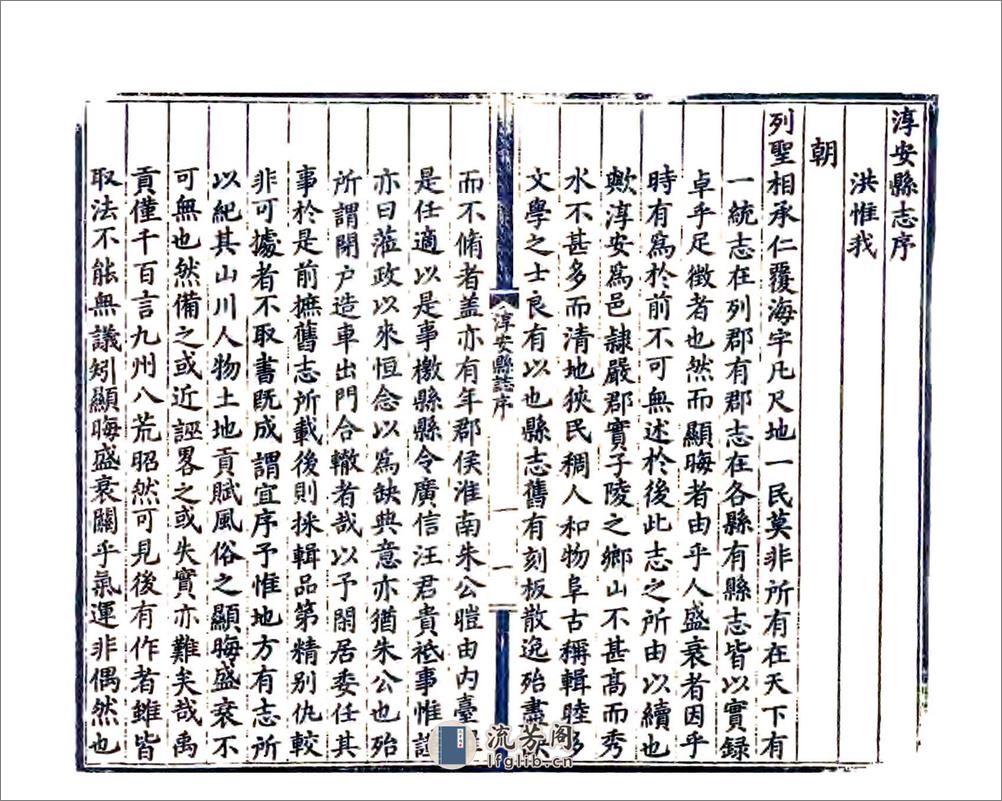 淳安縣志序
洪惟我
朝
列聖相承仁覆海宇凡尺地一民莫非所有在天下有
一統志在列郡有郡志在各縣有縣志皆以實録
卓乎足徴者也然而顯晦者由乎人盛衰者因乎
時有爲於前不可無述於後此志之所由以續也
歟淳安爲邑隷嚴郡實子陵之鄉山不甚髙而秀
水不甚多而清地狹民稠人和物阜古稱輯睦多
文學之士良有以也縣志舊有刻板散逸殆盡
淳安縣誌序
一
一
而不脩者盖亦有年郡侯淮南朱公暟由内臺
是任適以是事檄縣縣令廣信汪君貴祗事惟謹
亦曰蒞政以來恒念以爲缺典意亦猶朱公也殆
所謂閉户造車出門合轍者哉以予閒居委任其
事於是前摭舊志所載後則採輯品第精别仇較
非可據者不取書既成謂宜序予惟地方有志所
以紀其山川人物土地貢賦風俗之顯晦盛衰不
可無也然備之或近誣畧之或失實亦難矣哉禹
貢僅千百言九州八荒昭然可見後有作者雖皆
取法不能無議矧顯晦盛衰關乎氣運非偶然也
流芳阁
lfglib.cn